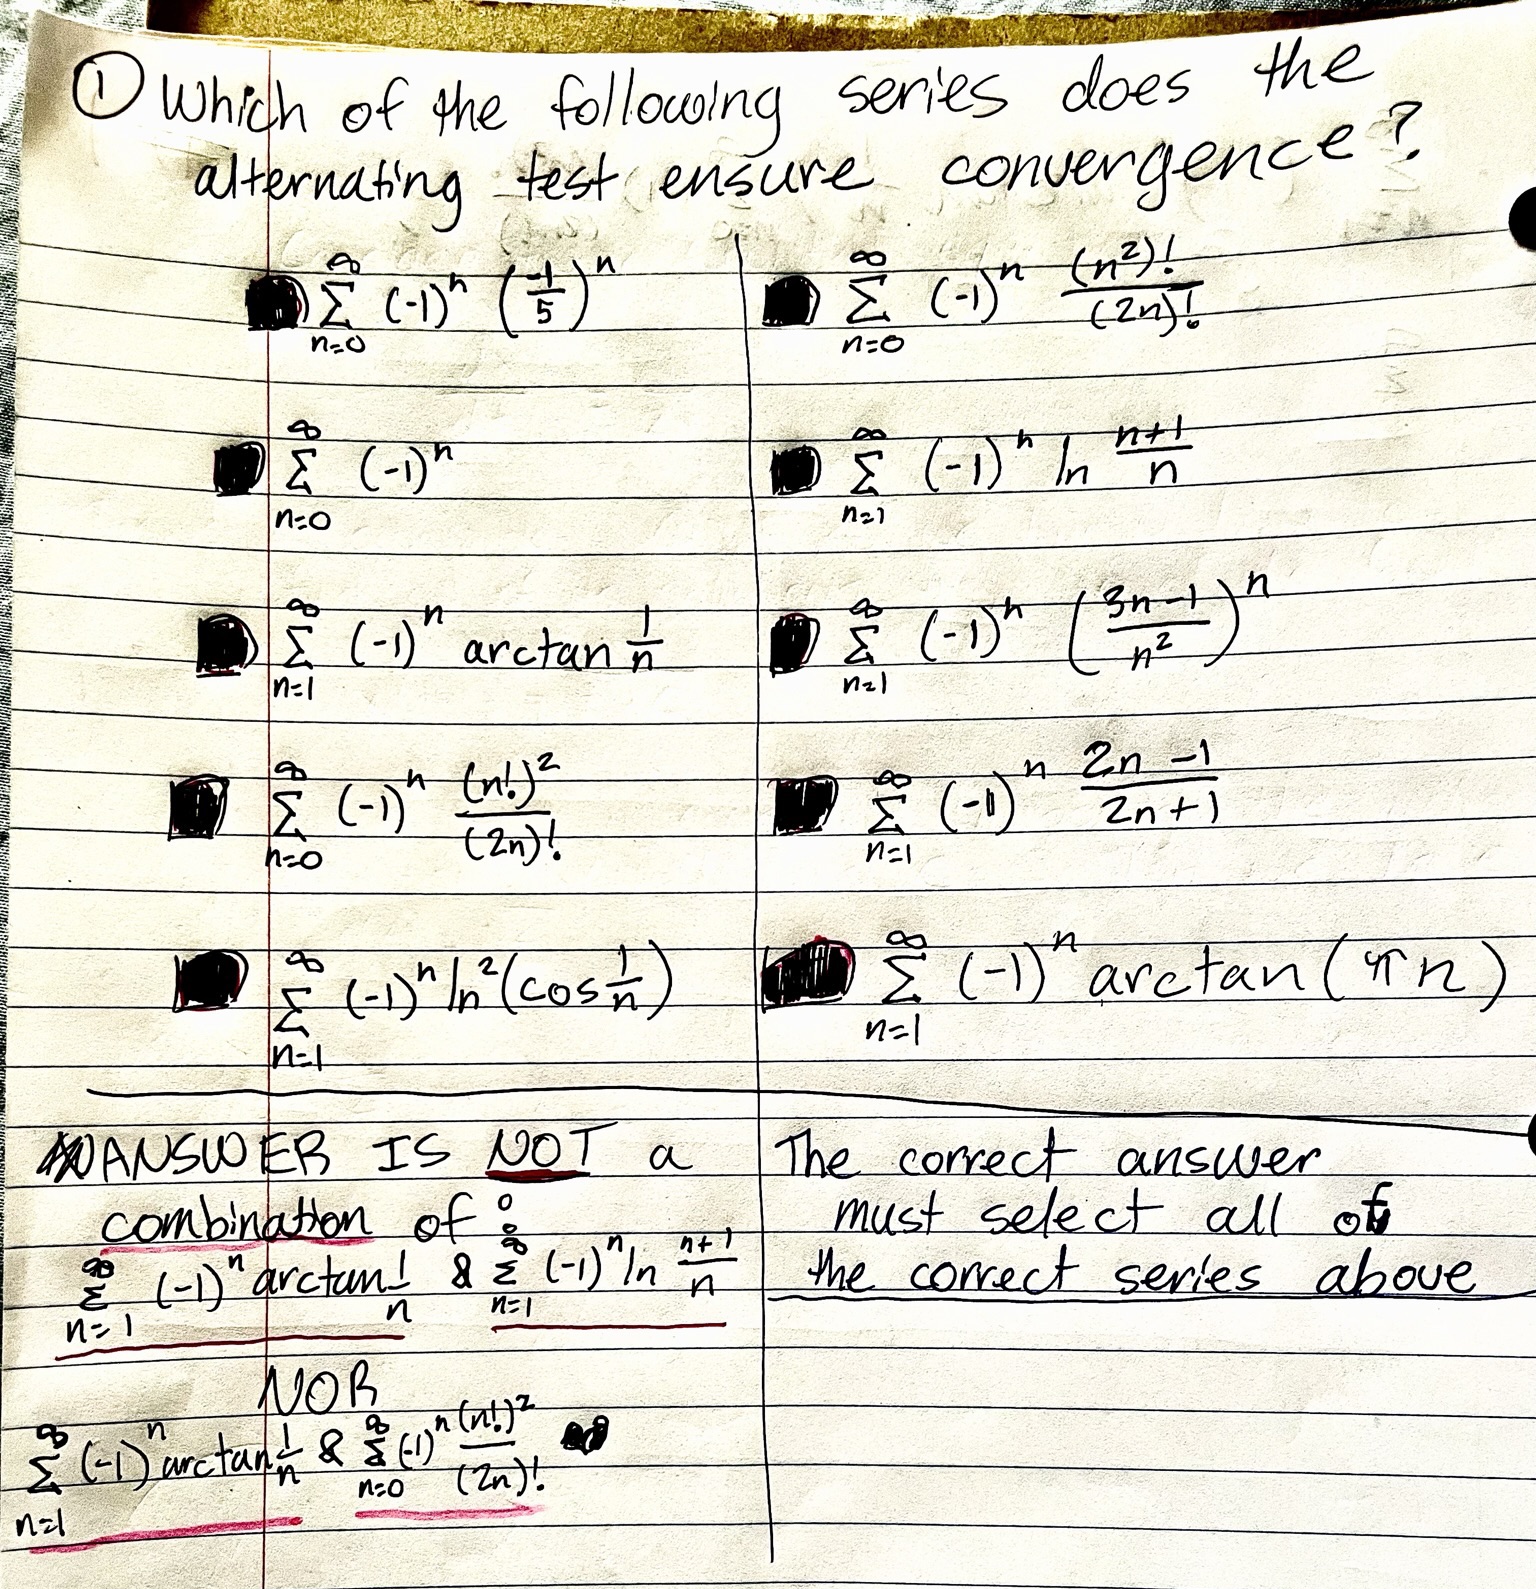 ① Which of the following series does the
alternating test ensure convergence?
∞ ∑ n=0 (-1)^n (-1/5)^n
∞ ∑ n=0 (-1)^n
∞ ∑ n=1 (-1)^n arctan 1/n
∞ ∑ n=0 (-1)^n (n!)^2/(2n)!
∞ ∑ n=1 (-1)^n ln^2(cos 1/n)
∞ ∑ n=0 (-1)^n (n^2)!/(2n)!
∞ ∑ n=1 (-1)^n ln n+1/n
∞ ∑ n=1 (-1)^n (3n-1/n^2)^n
∞ ∑ n=1 (-1)^n 2n-1/2n+1
∞ ∑ n=1 (-1)^n arctan(πn)
ANSWER IS NOT a
combination of :
∞ ∑ n=1 (-1)^n arctan 1/n & ∞ ∑ n=1 (-1)^n ln n+1/n
NOR
∞ ∑ n=1 (-1)^n arctan 1/n & ∞ ∑ n=0 (-1)^n (n!)^2/(2n)!
The correct answer
must select all of
the correct series above